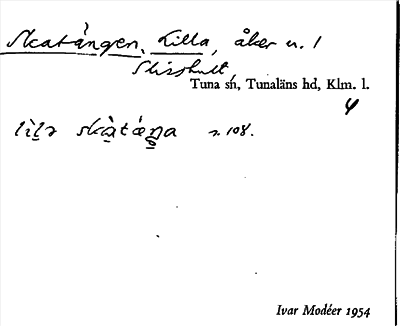 Skatängen, Lilla, åker u. 1
Slisshult
Tuna sn, Tunaläns hd, Klm. l.
4
lìlə skàtæŋa s. 108.
Ivar Modéer 1954